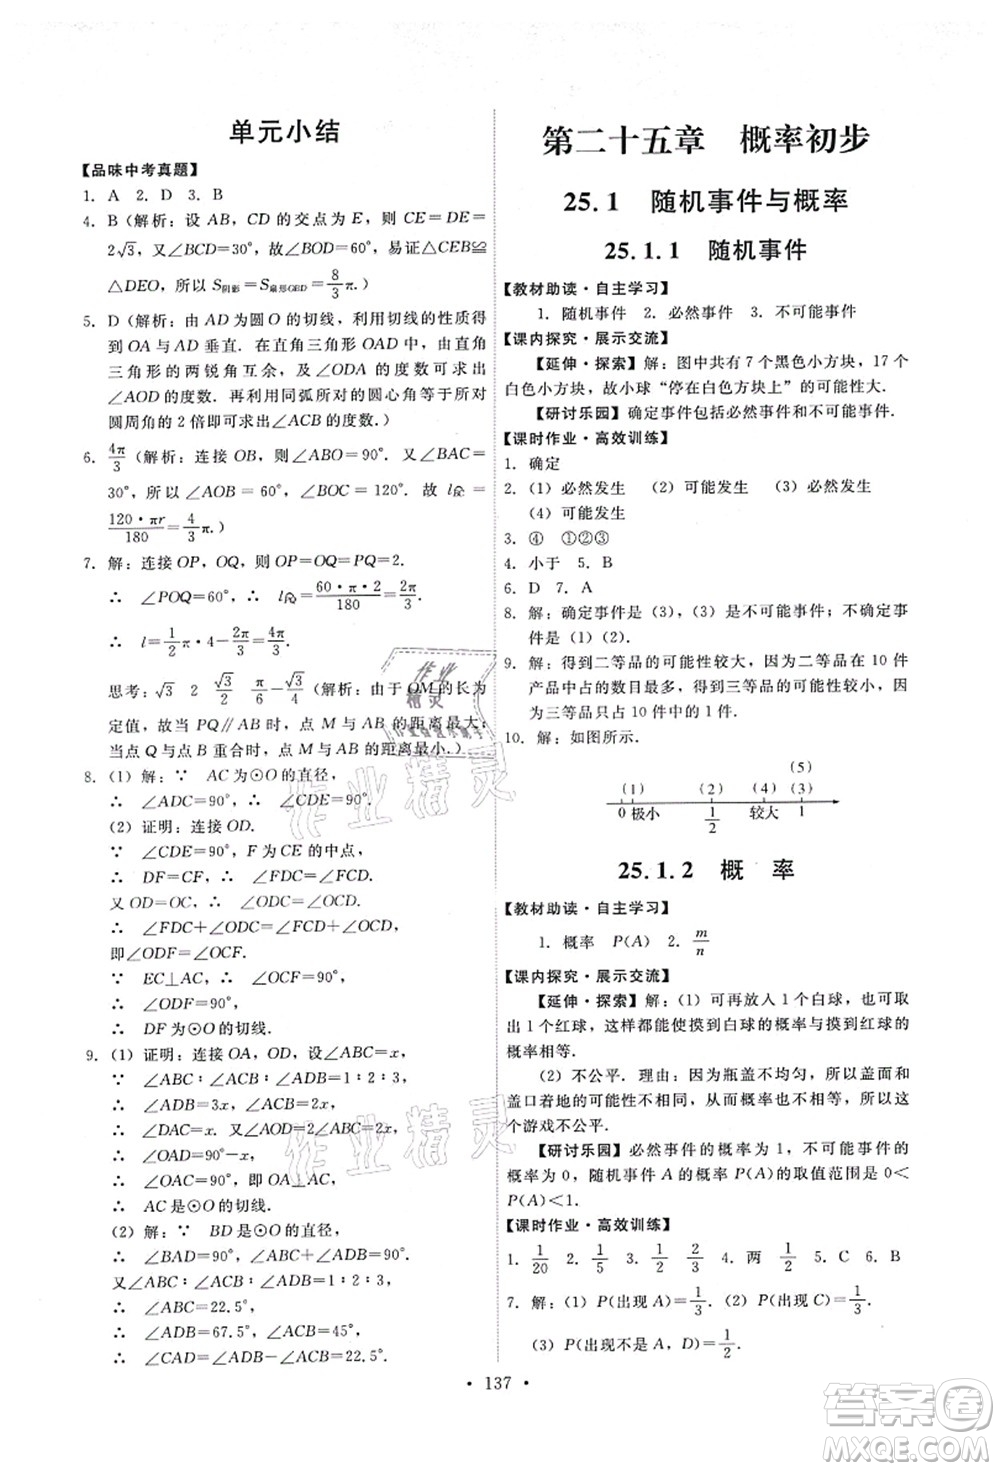 单元小结
【品味中考真题】
1. A 2. D 3. B
4. B（解析：设 AB，CD 的交点为 E，则 CE=DE=
2√3，又∠BCD=30°，故∠BOD=60°，易证△CEB≌
△DEO，所以 S阴影=S扇形OBD=8/3π.）
5. D（解析：由 AD 为圆 O 的切线，利用切线的性质得
到 OA 与 AD 垂直．在直角三角形 OAD 中，由直角
三角形的两锐角互余，及∠ODA 的度数可求出
∠AOD 的度数．再利用同弧所对的圆心角等于所对
圆周角的 2 倍即可求出∠ACB 的度数.）
6. 4π/3（解析：连接 OB，则∠ABO=90°．又∠BAC=
30°，所以∠AOB=60°，∠BOC=120°．故 l=
120·πr/180=4/3π.）
7. 解：连接 OP，OQ，则 OP=OQ=PQ=2.
∴ ∠POQ=60°，∴ l=60·π·2/180=2π/3.
∴ l=1/2π·4-2π/3=4π/3.
思考：√3 2 √3/2 π/6-√3/4（解析：由于 OM 的长为
定值，故当 PQ∥AB 时，点 M 与 AB 的距离最大；
当点 Q 与点 B 重合时，点 M 与 AB 的距离最小.）
8.（1）解：∵ AC 为⊙O 的直径，
∴ ∠ADC=90°，∴ ∠CDE=90°.
（2）证明：连接 OD.
∵ ∠CDE=90°，F 为 CE 的中点，
∴ DF=CF．∴ ∠FDC=∠FCD.
又 OD=OC，∴ ∠ODC=∠OCD.
∴ ∠FDC+∠ODC=∠FCD+∠OCD，
即∠ODF=∠OCF.
∵ EC⊥AC，∴ ∠OCF=90°，
∴ ∠ODF=90°.
∴ DF 为⊙O 的切线.
9.（1）证明：连接 OA，OD，设∠ABC=x，
∵ ∠ABC∶∠ACB∶∠ADB=1∶2∶3，
∴ ∠ADB=3x，∠ACB=2x.
∴ ∠DAC=x．又∠AOD=2∠ABC=2x，
∴ ∠OAD=90°-x.
∴ ∠OAC=90°，即 OA⊥AC，
∴ AC 是⊙O 的切线.
（2）解：∵ BD 是⊙O 的直径，
∴ ∠BAD=90°，∠ABC+∠ADB=90°.
又∠ABC∶∠ACB∶∠ADB=1∶2∶3，
∴ ∠ABC=22.5°，
∴ ∠ADB=67.5°，∠ACB=45°，
∴ ∠CAD=∠ADB-∠ACB=22.5°.
第二十五章 概率初步
25.1 随机事件与概率
25.1.1 随机事件
【教材助读·自主学习】
1. 随机事件 2. 必然事件 3. 不可能事件
【课内探究·展示交流】
【延伸·探索】解：图中共有 7 个黑色小方块，17 个
白色小方块，故小球“停在白色方块上”的可能性大.
【研讨乐园】确定事件包括必然事件和不可能事件.
【课时作业·高效训练】
1. 确定
2.（1）必然发生 （2）可能发生 （3）必然发生
（4）可能发生
3. ④ ①②③
4. 小于 5. B
6. D 7. A
8. 解：确定事件是（3），（3）是不可能事件；不确定事
件是（1）（2）.
9. 解：得到二等品的可能性较大，因为二等品在 10 件
产品中占的数目最多，得到三等品的可能性较小，因
为三等品只占 10 件中的 1 件.
10. 解：如图所示.
（5）
（1） （2） （4）（3）
0 极小 1/2 较大 1
25.1.2 概 率
【教材助读·自主学习】
1. 概率 P(A) 2. m/n
【课内探究·展示交流】
【延伸·探索】解：（1）可再放入 1 个白球，也可取
出 1 个红球，这样都能使摸到白球的概率与摸到红球的
概率相等.
（2）不公平．理由：因为瓶盖不均匀，所以盖面和
盖口着地的可能性不相同，所以概率也不相同，故这
个游戏不公平.
【研讨乐园】必然事件的概率为 1，不可能事件的概
率为 0，随机事件 A 的概率 P(A) 的取值范围是 0<
P(A)<1.
【课时作业·高效训练】
1. 1/20 2. 1/5 3. 1/2 2/3 4. 两 1/2 5. C 6. B
7. 解：（1）P(出现 A)=1/3.（2）P(出现 C)=1/3.
（3）P(出现不是 A，D)=1/2.
· 137 ·
作业精灵
作业精灵
作业精灵
答案圈
MXQE.COM